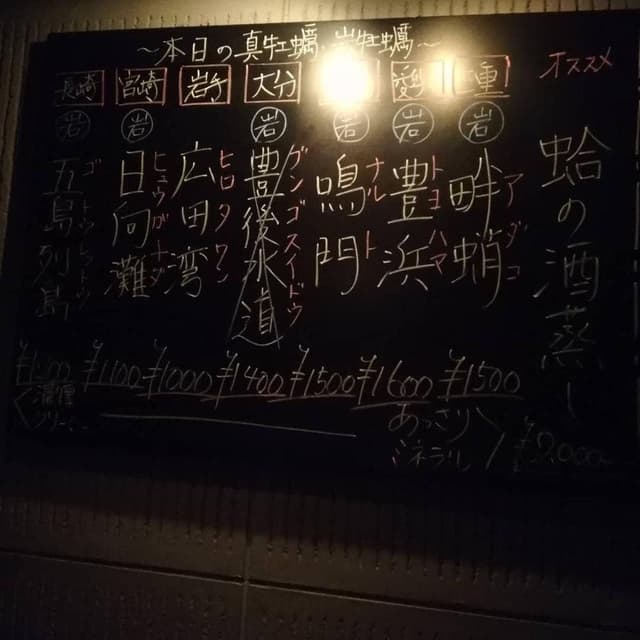 〜本日の真牡蠣、岩牡蠣〜
オススメ
蛤の酒蒸し
¥2,000
三重
岩
畔蛸
アダコ
¥1500
愛知
岩
豊浜
トヨハマ
¥1600
岩
鳴門
ナルト
¥1500
大分
岩
豊後水道
ブンゴスイドウ
¥1400
岩手
広田湾
ヒロタワン
¥1000
宮崎
岩
日向灘
ヒュウガナダ
¥1100
長崎
岩
五島列島
ゴトウレットウ
あっさり
ミネラル
濃厚